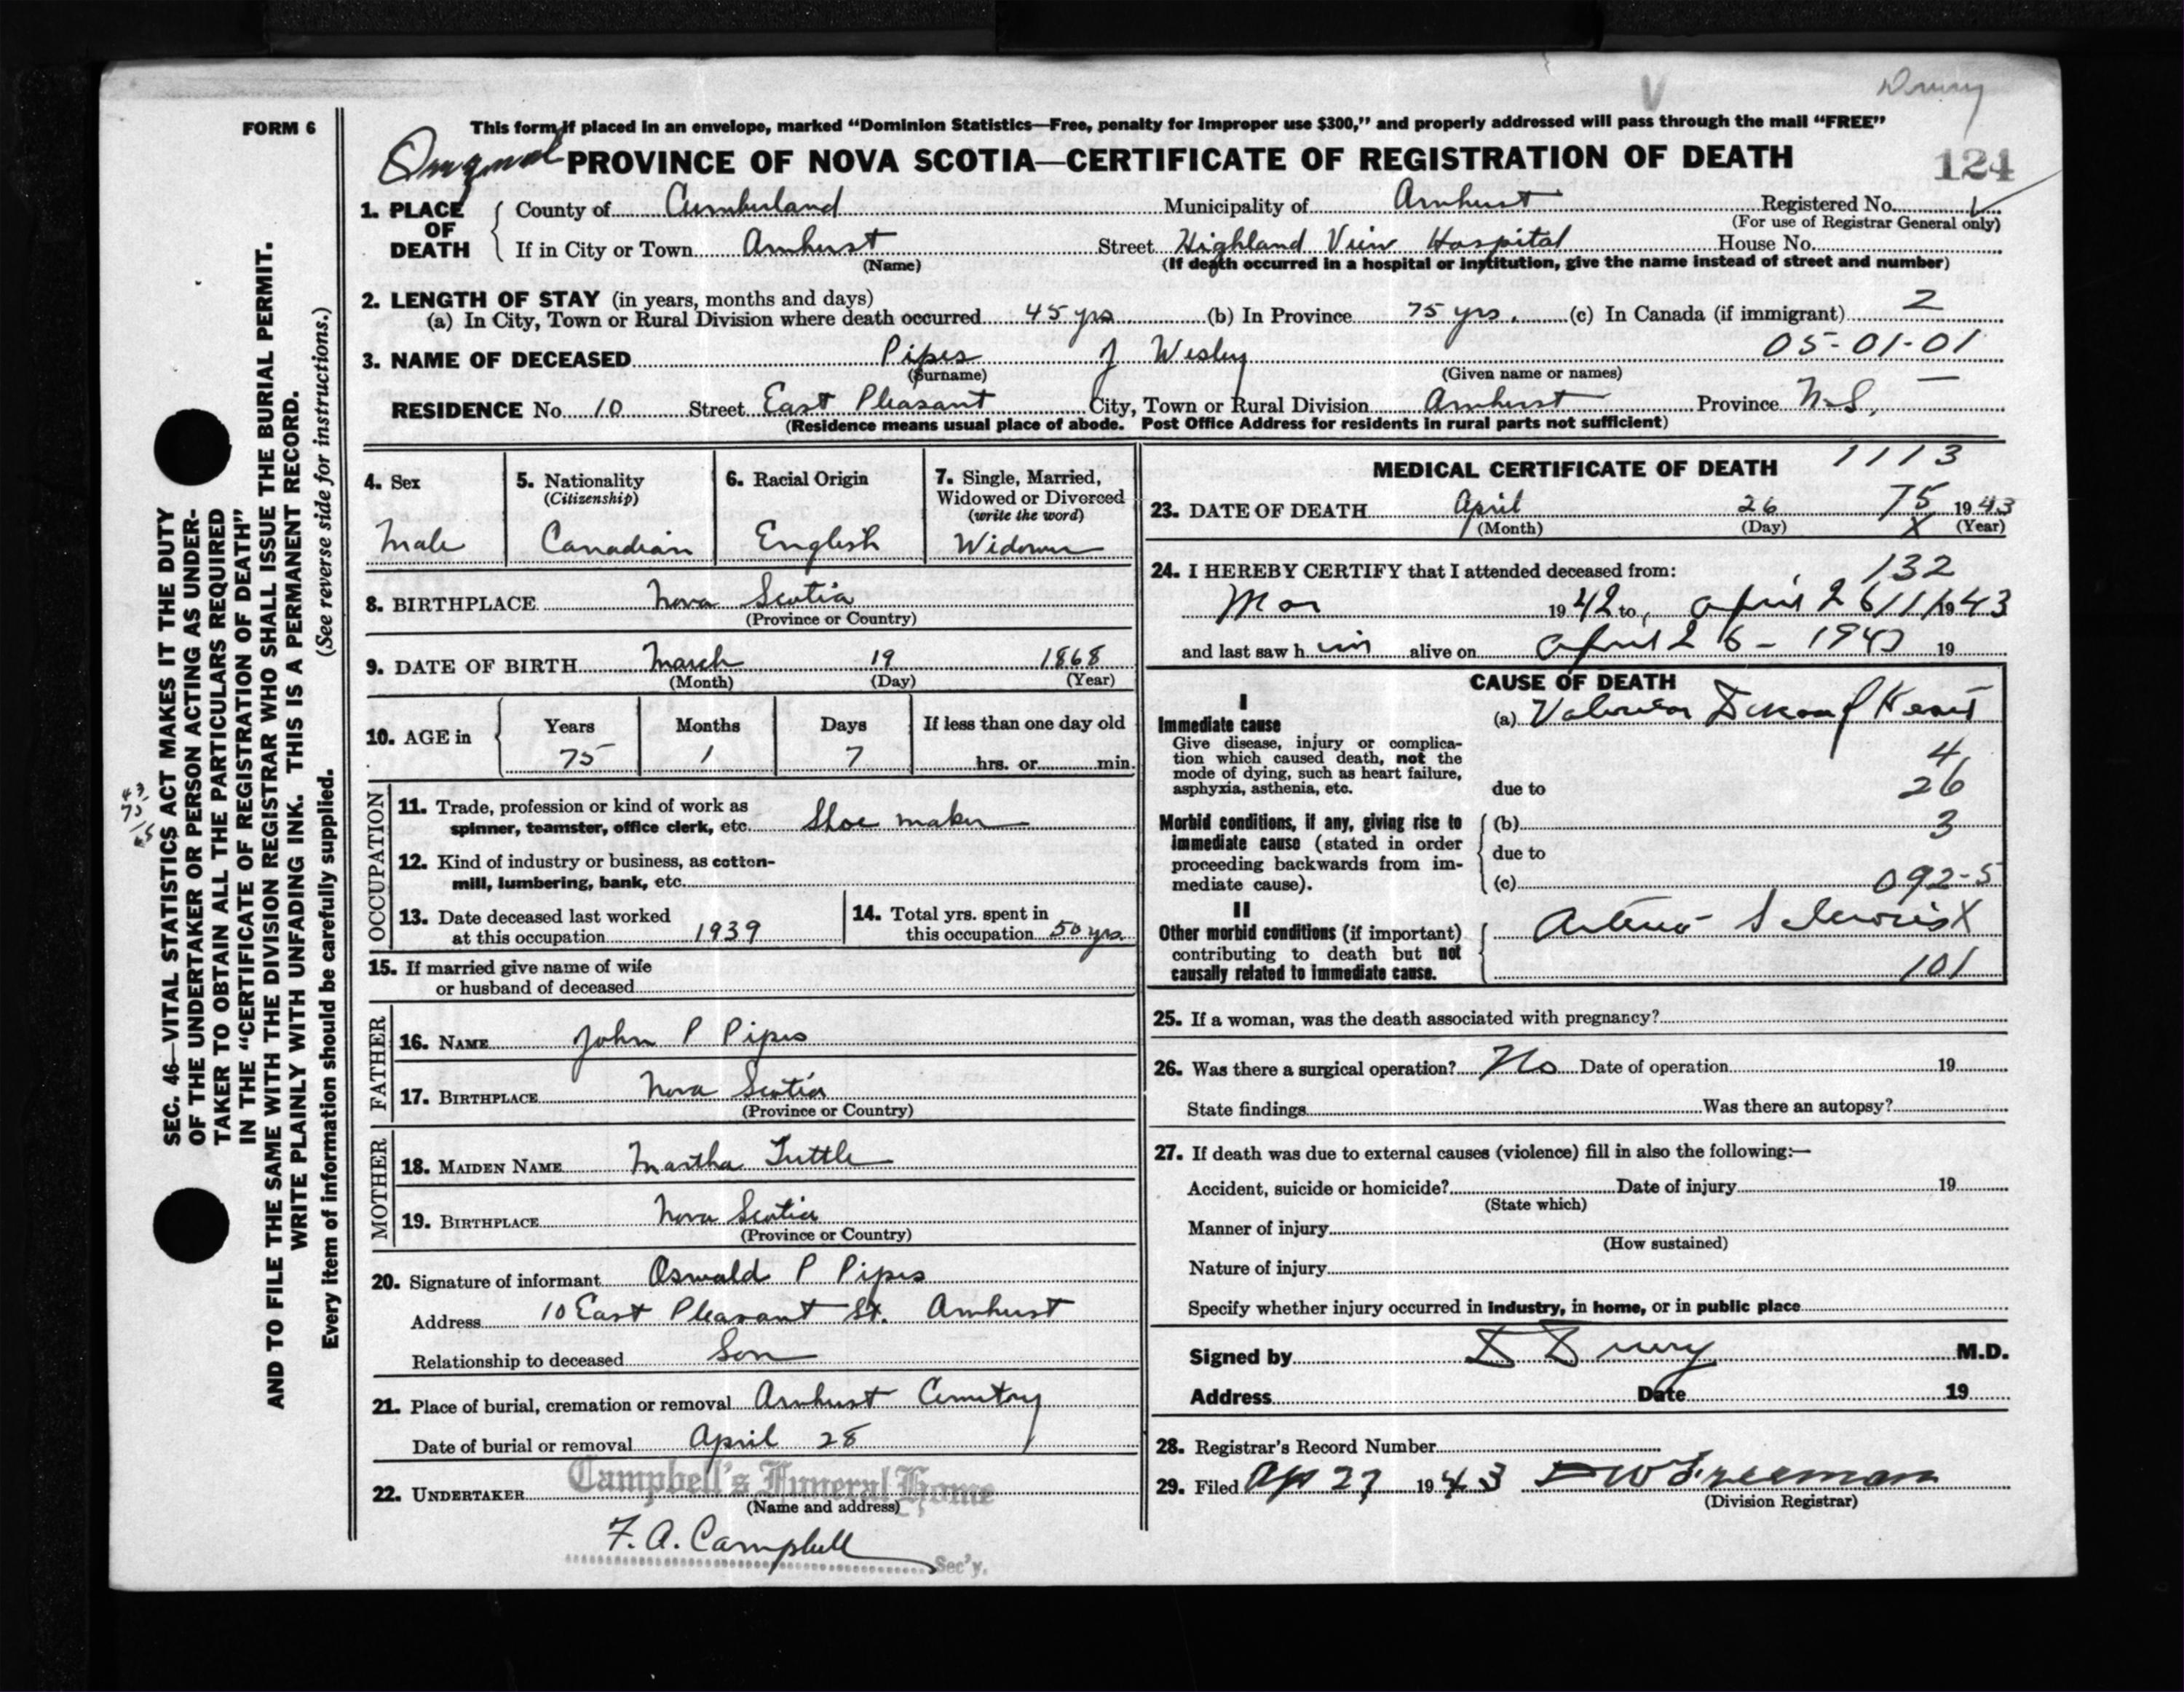 Drury
FORM 6
This form if placed in an envelope, marked “Dominion Statistics—Free, penalty for improper use $300,” and properly addressed will pass through the mail “FREE”
Original PROVINCE OF NOVA SCOTIA—CERTIFICATE OF REGISTRATION OF DEATH
124
1. PLACE OF DEATH
County of Cumberland Municipality of Amherst Registered No.
(For use of Registrar General only)
If in City or Town Amherst Street Highland View Hospital House No.
(Name) (If death occurred in a hospital or institution, give the name instead of street and number)
2. LENGTH OF STAY (in years, months and days)
(a) In City, Town or Rural Division where death occurred 45 yrs (b) In Province 75 yrs. (c) In Canada (if immigrant) 2
05-01-01
3. NAME OF DECEASED Pipes J Wesley
(Surname) (Given name or names)
RESIDENCE No. 10 Street East Pleasant City, Town or Rural Division Amherst Province N.S. —
(Residence means usual place of abode. Post Office Address for residents in rural parts not sufficient)
4. Sex
Male
5. Nationality
(Citizenship)
Canadian
6. Racial Origin
English
7. Single, Married,
Widowed or Divorced
(write the word)
Widower
8. BIRTHPLACE Nova Scotia
(Province or Country)
9. DATE OF BIRTH March 19 1868
(Month) (Day) (Year)
10. AGE in
Years Months Days If less than one day old
75 1 7 hrs. or min.
OCCUPATION
11. Trade, profession or kind of work as
spinner, teamster, office clerk, etc. Shoe maker
12. Kind of industry or business, as cotton-
mill, lumbering, bank, etc.
13. Date deceased last worked
at this occupation 1939
14. Total yrs. spent in
this occupation 50 yrs.
15. If married give name of wife
or husband of deceased
FATHER
16. NAME John P Pipes
17. BIRTHPLACE Nova Scotia
(Province or Country)
MOTHER
18. MAIDEN NAME Martha Tuttle
19. BIRTHPLACE Nova Scotia
(Province or Country)
20. Signature of informant Oswald P Pipes
Address 10 East Pleasant St. Amherst
Relationship to deceased Son
21. Place of burial, cremation or removal Amherst Cemetry
Date of burial or removal April 28
22. UNDERTAKER Campbell's Funeral Home
(Name and address)
F. A. Campbell
Sec'y.
MEDICAL CERTIFICATE OF DEATH 1113
23. DATE OF DEATH April 26 75 1943
(Month) (Day) X (Year)
24. I HEREBY CERTIFY that I attended deceased from: 132
Mar 1942 to April 26 1943
and last saw him alive on April 26 - 1943 19
CAUSE OF DEATH
I
Immediate cause
Give disease, injury or complica-
tion which caused death, not the
mode of dying, such as heart failure,
asphyxia, asthenia, etc.
(a) Valvular Disease of Heart
4
due to 26
Morbid conditions, if any, giving rise to
immediate cause (stated in order
proceeding backwards from im-
mediate cause).
(b) 3
due to
(c) 092-5
II
Other morbid conditions (if important)
contributing to death but not
causally related to immediate cause.
Arterio Sclerosis X
101
25. If a woman, was the death associated with pregnancy?
26. Was there a surgical operation? No Date of operation 19
State findings Was there an autopsy?
27. If death was due to external causes (violence) fill in also the following:—
Accident, suicide or homicide? Date of injury 19
(State which)
Manner of injury
(How sustained)
Nature of injury
Specify whether injury occurred in industry, in home, or in public place
Signed by D Drury M.D.
Address Date 19
28. Registrar's Record Number
29. Filed Ap 27 1943 D W Freeman
(Division Registrar)
SEC. 46—VITAL STATISTICS ACT MAKES IT THE DUTY
OF THE UNDERTAKER OR PERSON ACTING AS UNDER-
TAKER TO OBTAIN ALL THE PARTICULARS REQUIRED
IN THE “CERTIFICATE OF REGISTRATION OF DEATH”
AND TO FILE THE SAME WITH THE DIVISION REGISTRAR WHO SHALL ISSUE THE BURIAL PERMIT.
WRITE PLAINLY WITH UNFADING INK. THIS IS A PERMANENT RECORD.
Every item of information should be carefully supplied. (See reverse side for instructions.)
43
75